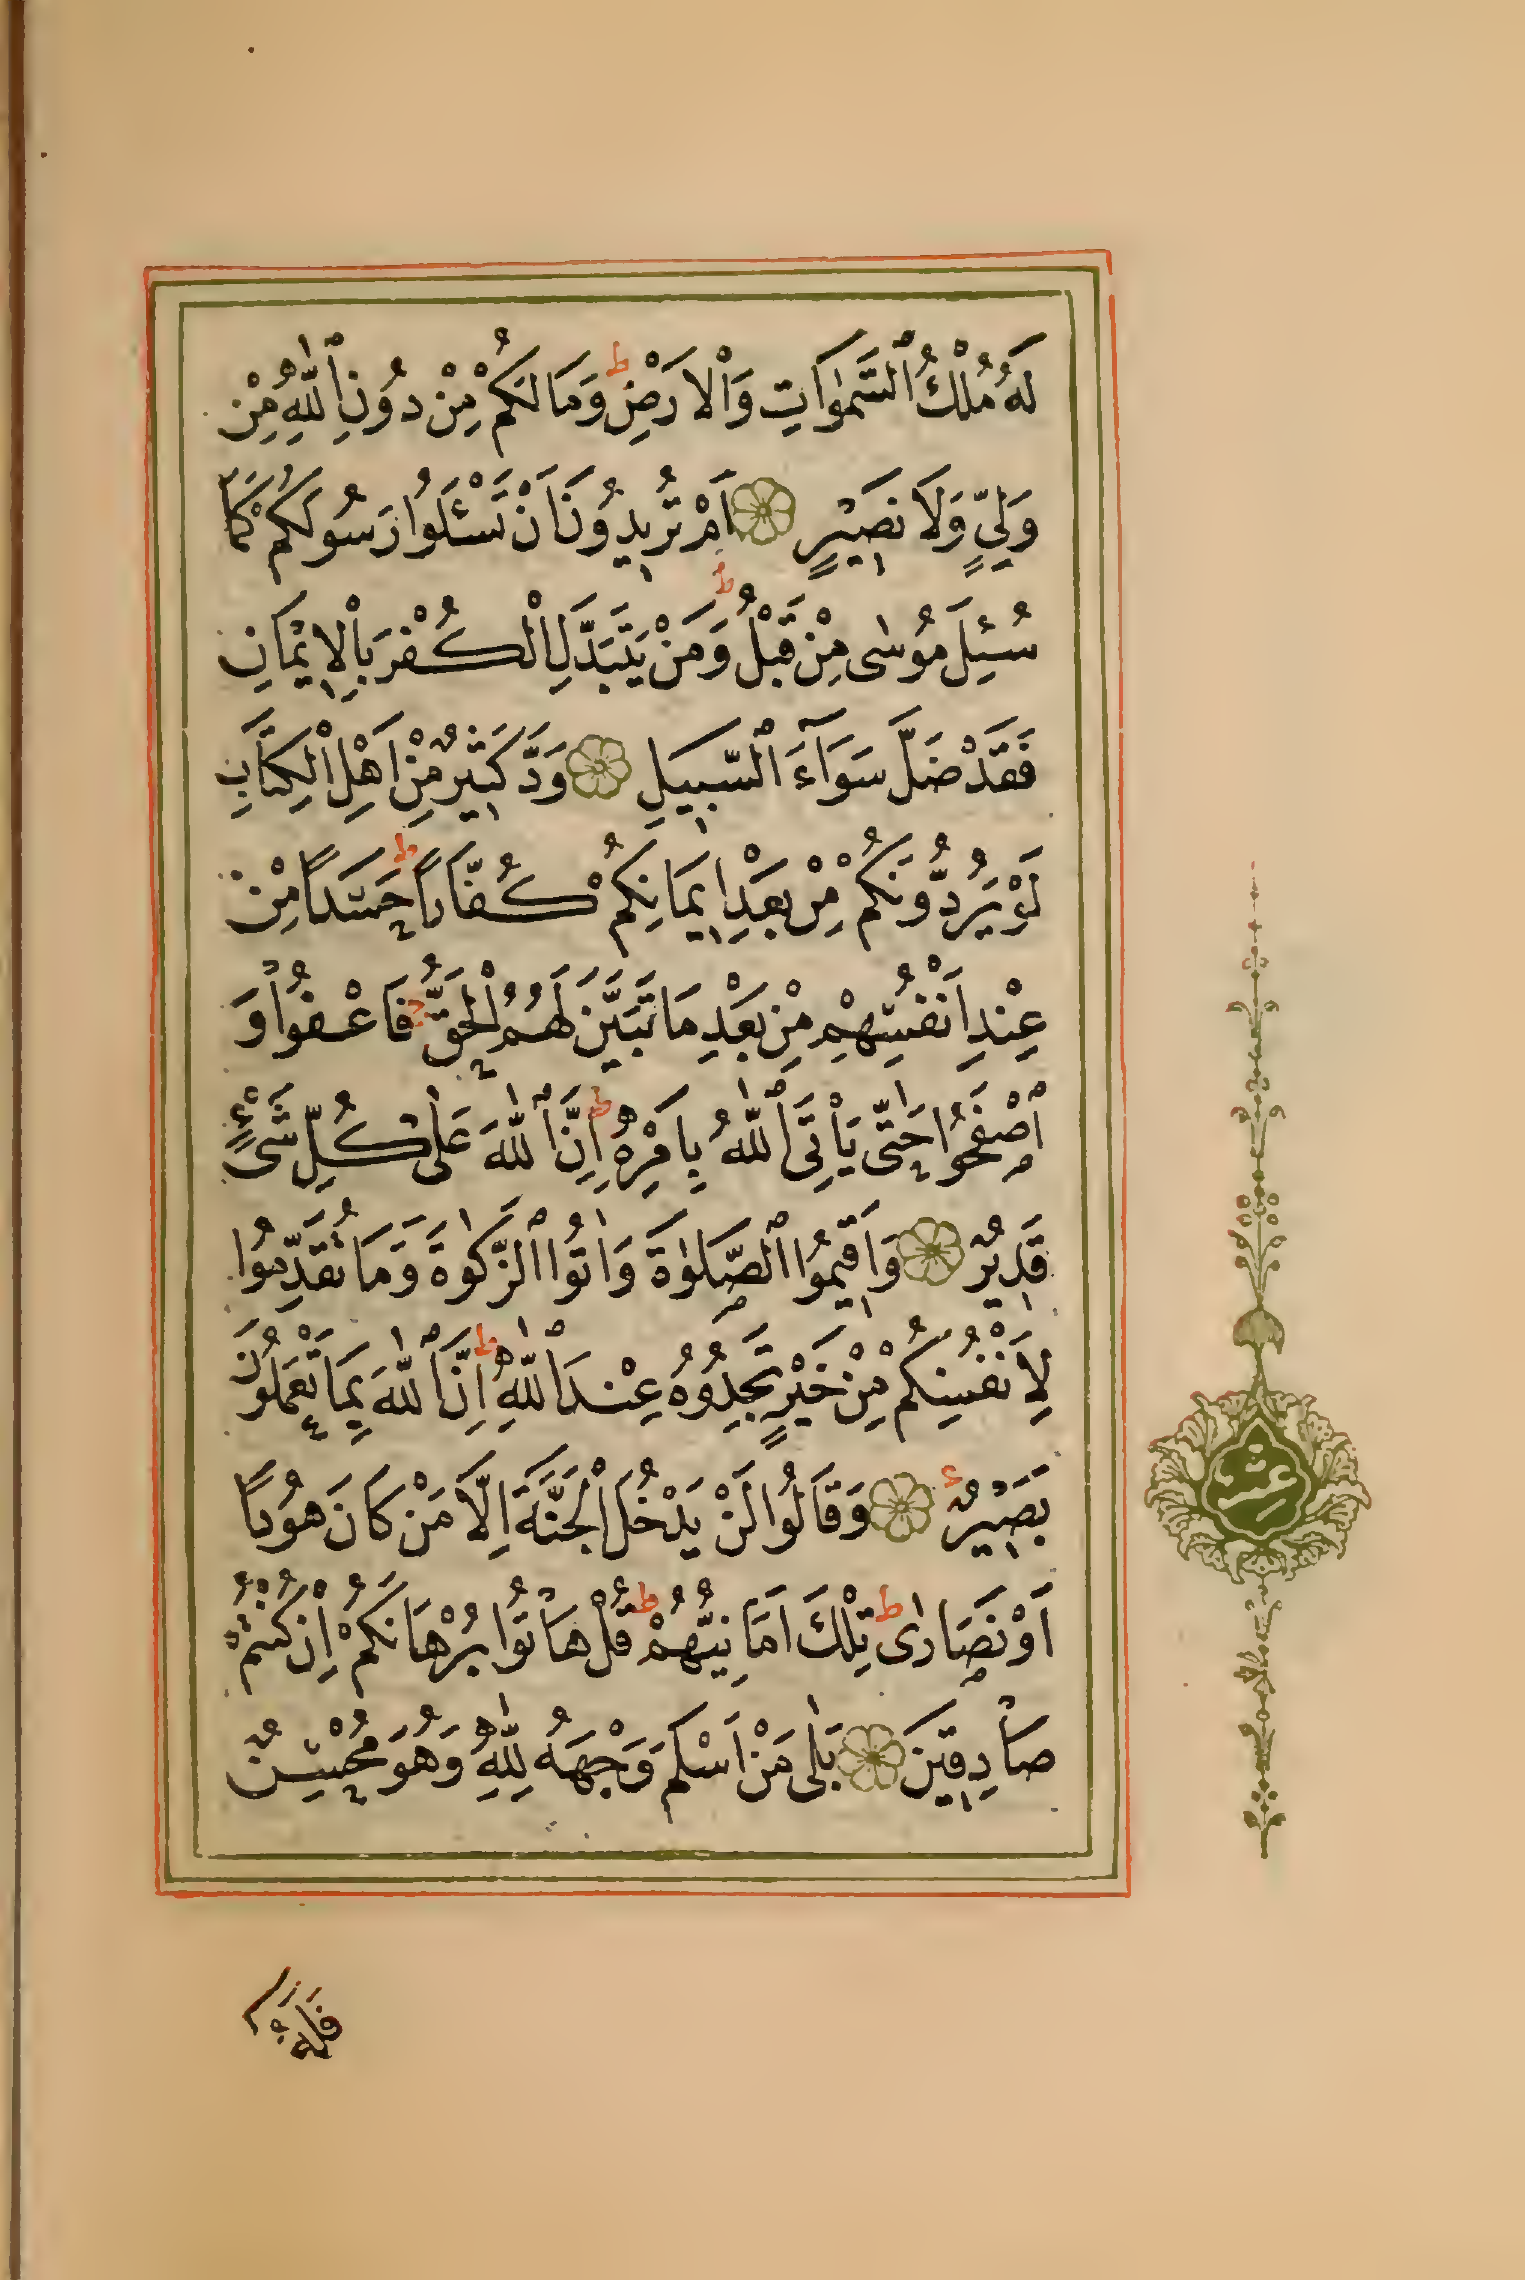 لَهُ مُلْكُ ٱلسَّمٰوَاتِ وَٱلْاَرْضِ ط وَمَا لَكُمْ مِنْ دُونِ ٱللّٰهِ مِنْ
وَلِيٍّ وَلَا نَصِيرٍ اَمْ تُرِيدُونَ اَنْ تَسْئَلُوا رَسُولَكُمْ كَمَا
سُئِلَ مُوسٰى مِنْ قَبْلُ ط وَمَنْ يَتَبَدَّلِ الْكُفْرَ بِالْاِيْمَانِ
فَقَدْ ضَلَّ سَوَآءَ ٱلسَّبِيلِ وَدَّ كَثِيرٌ مِنْ اَهْلِ الْكِتَابِ
لَوْ يَرُدُّونَكُمْ مِنْ بَعْدِ اِيمَانِكُمْ كُفَّارًا ط حَسَدًا مِنْ
عِنْدِ اَنْفُسِهِمْ مِنْ بَعْدِ مَا تَبَيَّنَ لَهُمُ الْحَقُّ ج فَاعْفُوا وَ
ٱصْفَحُوا حَتّٰى يَأْتِىَ ٱللّٰهُ بِاَمْرِهِ ط اِنَّ ٱللّٰهَ عَلٰى كُلِّ شَىْءٍ
قَدِيرٌ وَاَقِيمُوا ٱلصَّلٰوةَ وَاٰتُوا ٱلزَّكٰوةَ وَمَا تُقَدِّمُوا
لِاَنْفُسِكُمْ مِنْ خَيْرٍ تَجِدُوهُ عِنْدَ ٱللّٰهِ ط اِنَّ ٱللّٰهَ بِمَا تَعْمَلُونَ
بَصِيرٌ ء وَقَالُوا لَنْ يَدْخُلَ الْجَنَّةَ اِلَّا مَنْ كَانَ هُودًا
اَوْ نَصَارٰى ط تِلْكَ اَمَانِيُّهُمْ ط قُلْ هَاتُوا بُرْهَانَكُمْ اِنْ كُنْتُمْ
صَادِقِينَ بَلٰى مَنْ اَسْلَمَ وَجْهَهُ لِلّٰهِ وَهُوَ مُحْسِنٌ
فَلَهُ
عشر